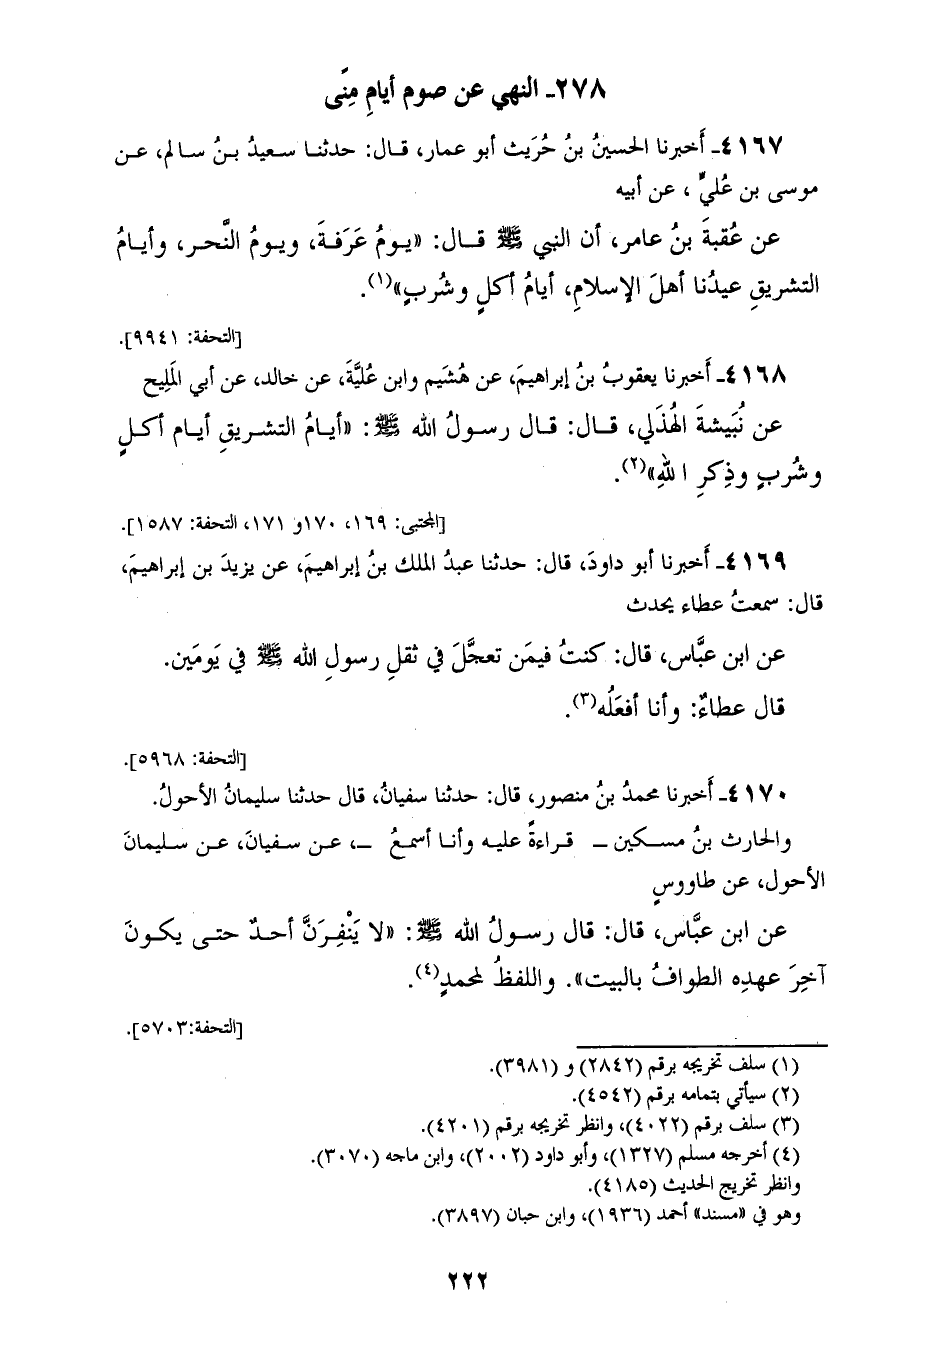 ٢٧٨ـ النهي عن صوم أيامِ مِنًى
٤١٦٧ـ أَخبرنا الحسينُ بنُ حُرَيث أبو عمار، قـال: حدثنـا سـعيدُ بـنُ سـالم، عـن
موسى بن عُليٍّ ، عن أبيه
عن عُقبةَ بنُ عامر، أن النبي ﷺ قـال: «يـومُ عَرَفـةَ، ويـومُ النَّحـر، وأيـامُ
التشريقِ عيدُنا أهلَ الإسلامِ، أيامُ أكلٍ وشُربٍ»(١).
[التحفة: ٩٩٤١].
٤١٦٨ـ أَخبرنا يعقوبُ بنُ إبراهيمَ، عن هُشَيم وابن عُليَّةَ، عن خالد، عن أبي المَلِيح
عن نُبَيشةَ الهُذَلي، قـال: قـال رسـولُ الله ﷺ: «أيـامُ التشـريقِ أيـام أكـلٍ
وشُربٍ وذِكرِ اللهِ»(٢).
[المجتبى: ١٦٩، ١٧٠و ١٧١، التحفة: ١٥٨٧].
٤١٦٩ـ أَخبرنا أبو داودَ، قال: حدثنا عبدُ الملك بنُ إبراهيمَ، عن يزيدَ بن إبراهيمَ،
قال: سمعتُ عطاء يحدث
عن ابن عبَّاس، قال: كنتُ فيمَن تعجَّلَ في ثقلِ رسولِ الله ﷺ في يَومَين.
قال عطاءٌ: وأنا أفعَلُه(٣).
[التحفة: ٥٩٦٨].
٤١٧٠ـ أَخبرنا محمدُ بنُ منصور، قال: حدثنا سفيانُ، قال حدثنا سليمانُ الأحولُ.
والحارث بنُ مسـكين ـ قـراءةً عليـه وأنـا أسمـعُ ـ، عـن سـفيانَ، عـن سـليمانَ
الأحول، عن طاووسٍ
عن ابن عبَّاس، قال: قال رسـولُ الله ﷺ: «لا يَنْفِرَنَّ أحـدٌ حتـى يكـونَ
آخِرَ عهدِه الطوافُ بالبيت». واللفظُ لمحمدٍ(٤).
[التحفة:٥٧٠٣].
(١) سلف تخريجه برقم (٢٨٤٢) و (٣٩٨١).
(٢) سيأتي بتمامه برقم (٤٥٤٢).
(٣) سلف برقم (٤٠٢٢)، وانظر تخريجه برقم (٤٢٠١).
(٤) أخرجه مسلم (١٣٢٧)، وأبو داود (٢٠٠٢)، وابن ماجه (٣٠٧٠).
وانظر تخريج الحديث (٤١٨٥).
وهو في «مسند» أحمد (١٩٣٦)، وابن حبان (٣٨٩٧).
٢٢٢